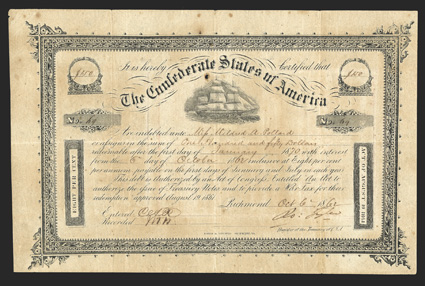 It is hereby Certified that
$100
$100
The Confederate States of America
No 64
No 64
are indebted unto Miss Mildred A. Pollard
or assigns in the sum of One Hundred and fifty Dollars
redeemable after the first day of January 1870 with interest
from the 6 day of October 1862 inclusive at Eight per cent
per annum, payable on the first days of January and July in each year
This debt is authorized by an Act of Congress Entitled An Act to
authorize the Issue of Treasury Notes and to provide a War Tax for their
redemption approved August 19, 1861.
EIGHT PER CENT
Richmond Oct 6th 1862
Entered Oct 6
Recorded
Register of the Treasury C.S.